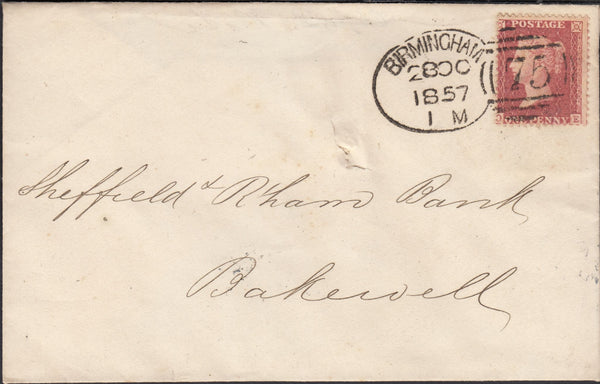 POSTAGE
BIRMINGHAM
28OC
1857
1 M
75
PENNY
E
Sheffield & R'ham Bank
Bakewell